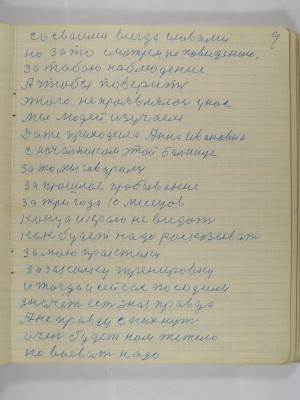 9
со своими всегда словами
но за то смотрем по поведению.
за табою наблюдение
А чтобы поверить
этого не проявлялос у нас
мы людей изучаем
Даже приходила Анна Ивановна
с начальником этой болнице
за то мы говорили
за прошлое пробывание
за три года 10 месецов
конца и краю не видат
как будет надо росказоват
за мою практику
за закалку тренеровку
и тогда и сейчас посодили
значет ест экая правда
А не правду спихнут
и нам будет нам тежело
но воеват надо